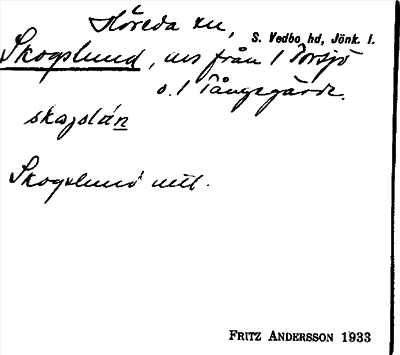 Höreda sn, S. Vedbo hd, Jönk. l.
Skogslund, avs från 1 Torsjö
o. 1 Tångsgärde.
skogslún
Skogslund utt.
FRITZ ANDERSSON 1933